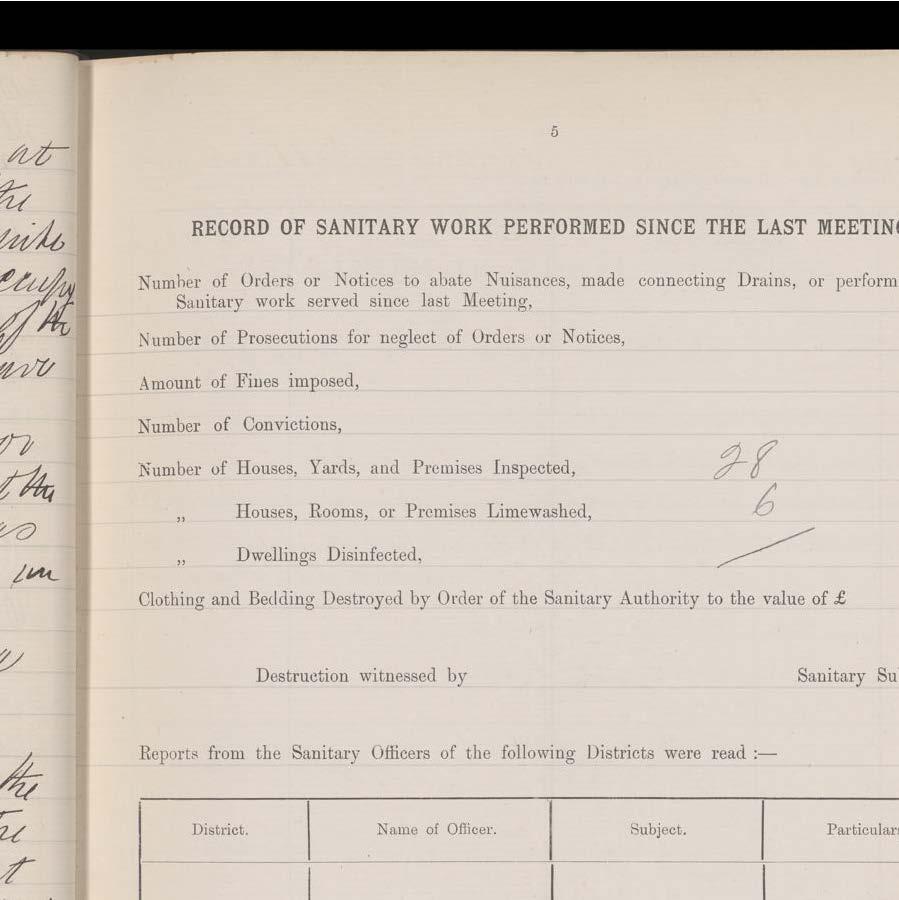 at
the
5
RECORD OF SANITARY WORK PERFORMED SINCE THE LAST MEETING
Number of Orders or Notices to abate Nuisances, made connecting Drains, or perform
Sanitary work served since last Meeting,
Number of Prosecutions for neglect of Orders or Notices,
Amount of Fines imposed,
Number of Convictions,
Number of Houses, Yards, and Premises Inspected, 28
„ Houses, Rooms, or Premises Limewashed, 6
„ Dwellings Disinfected, /
Clothing and Bedding Destroyed by Order of the Sanitary Authority to the value of £
Destruction witnessed by Sanitary Su
Reports from the Sanitary Officers of the following Districts were read :—
District. Name of Officer. Subject. Particulars